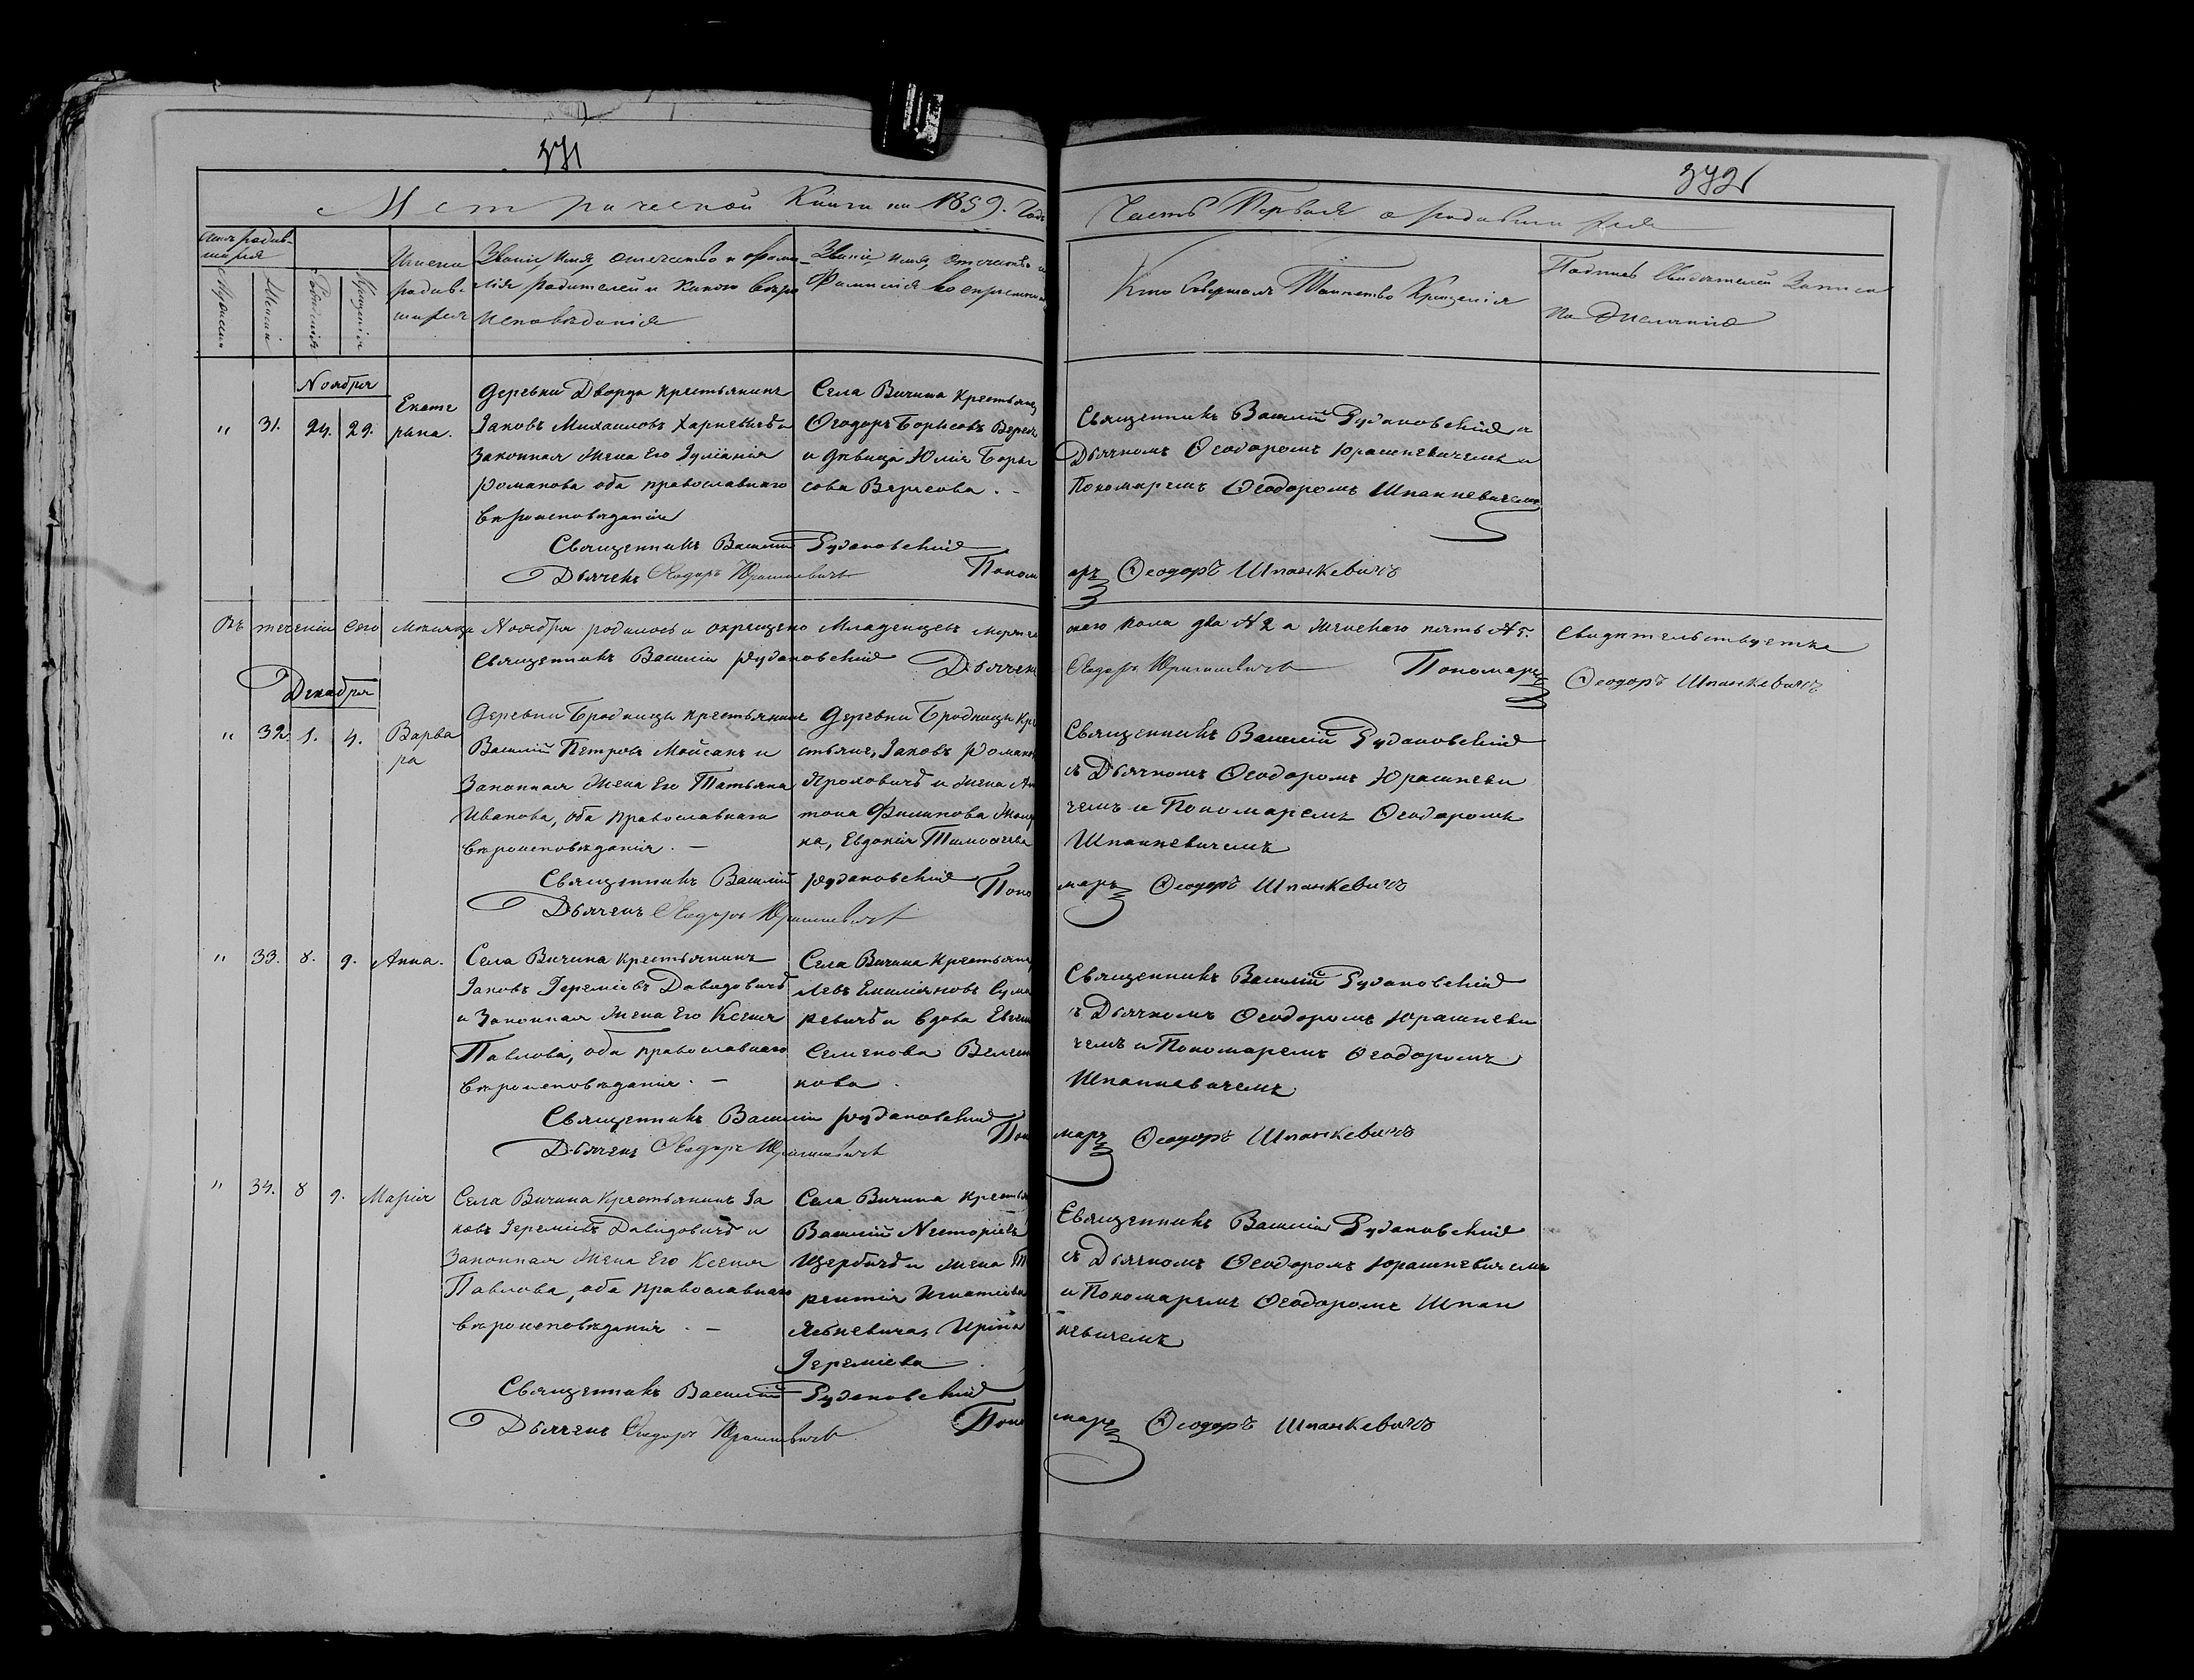 371
372
Метрической Книги на 1859. Годъ
Часть Первая о родившихся
Счетъ родив-
шихся
Мужеска
Женска
Рожденія
Крещенія
Имена
родив-
шихся
Званіе, Имя, Отчество и фами-
лія родителей и какого вѣро
исповѣданія
Званіе, имя, отчество и
Фамилія восприемни
Кто Совершалъ Таинство Крещенія
Подпись Свидѣтелей Записи
по Желанію
Ноября
" 31. 24. 29.
Екате
рина.
Деревни Дворца крестьянинъ
Іаковъ Михаиловъ Харневичъ и
Законная Жена Его Іуліанія
Романова оба православнаго
вѣроисповѣданія
Села Вичина Крестьянинъ
Ѳеодоръ Борисовъ Верес
и дѣвица Юлія Бори
сова Вересова. -
Священникъ Василій Рудаковскій и
Дьячкомъ Ѳеодоромъ Юрашкевичемъ и
Пономаремъ Ѳеодоромъ Шпанкевичемъ
Священникъ Василій Рудаковскій
Дьячекъ Ѳеодоръ Юрашкевичъ Пономарь Ѳеодоръ Шпанкевичъ
Въ теченіи сего мѣсяца Ноября родилось и окрещено Младенцевъ мужескаго пола два № 2 а женскаго пять № 5. Свидѣтельствуетъ
Священникъ Василій Рудаковскій Дьячекъ Ѳеодоръ Юрашкевичъ Пономарь Ѳеодоръ Шпанкевичъ
Декабря
" 32. 1. 4.
Варва
ра
Деревни Бродницы крестьянинъ
Василій Петровъ Мойсакъ и
Законная Жена Его Татьяна
Иванова, оба православнаго
вѣроисповѣданія. —
Деревни Бродницы Кре
стьян, Іаковъ Романов
Яроховичъ и Жена Ан
тона Филипова
ка, Евдокія Тимоѳеева
Священникъ Василій Рудаковскій
съ Дьячкомъ Ѳеодоромъ Юрашкеви
чемъ и Пономаремъ Ѳеодоромъ
Шпанкевичемъ
Священникъ Василій Рудаковскій
Дьячекъ Ѳеодоръ Юрашкевичъ Пономарь Ѳеодоръ Шпанкевичъ
" 33. 8. 9. Анна.
Села Вичина крестьянинъ
Іаковъ Іереміевъ Давидовичъ
и Законная Жена Его Ксенія
Павлова, оба православнаго
вѣроисповѣданія. —
Села Вичина Крестьянин
Левъ Емиліановъ Сума
ревичъ и вдова Евген
Семенова Велес
кова.
Священникъ Василій Рудаковскій
съ Дьячкомъ Ѳеодоромъ Юрашкеви
чемъ и Пономаремъ Ѳеодоромъ
Шпанкевичемъ
Священникъ Василій Рудаковскій
Дьячекъ Ѳеодоръ Юрашкевичъ Пономарь Ѳеодоръ Шпанкевичъ
" 34. 8 9. Марія
Села Вичина Крестьянинъ Іа
ковъ Іереміевъ Давидовичъ и
Законная Жена Его Ксенія
Павлова, оба православнаго
вѣроисповѣданія. —
Села Вичина крестья
Василій Несторіевъ
Щербачъ и жена Т
рентія Игнатіева
Яськевича, Ирина
Іереміева.
Священникъ Василій Рудаковскій
съ Дьячкомъ Ѳеодоромъ Юрашкевичемъ
и Пономаремъ Ѳеодоромъ Шпан
кевичемъ
Священникъ Василій Рудаковскій
Дьячекъ Ѳеодоръ Юрашкевичъ Пономарь Ѳеодоръ Шпанкевичъ